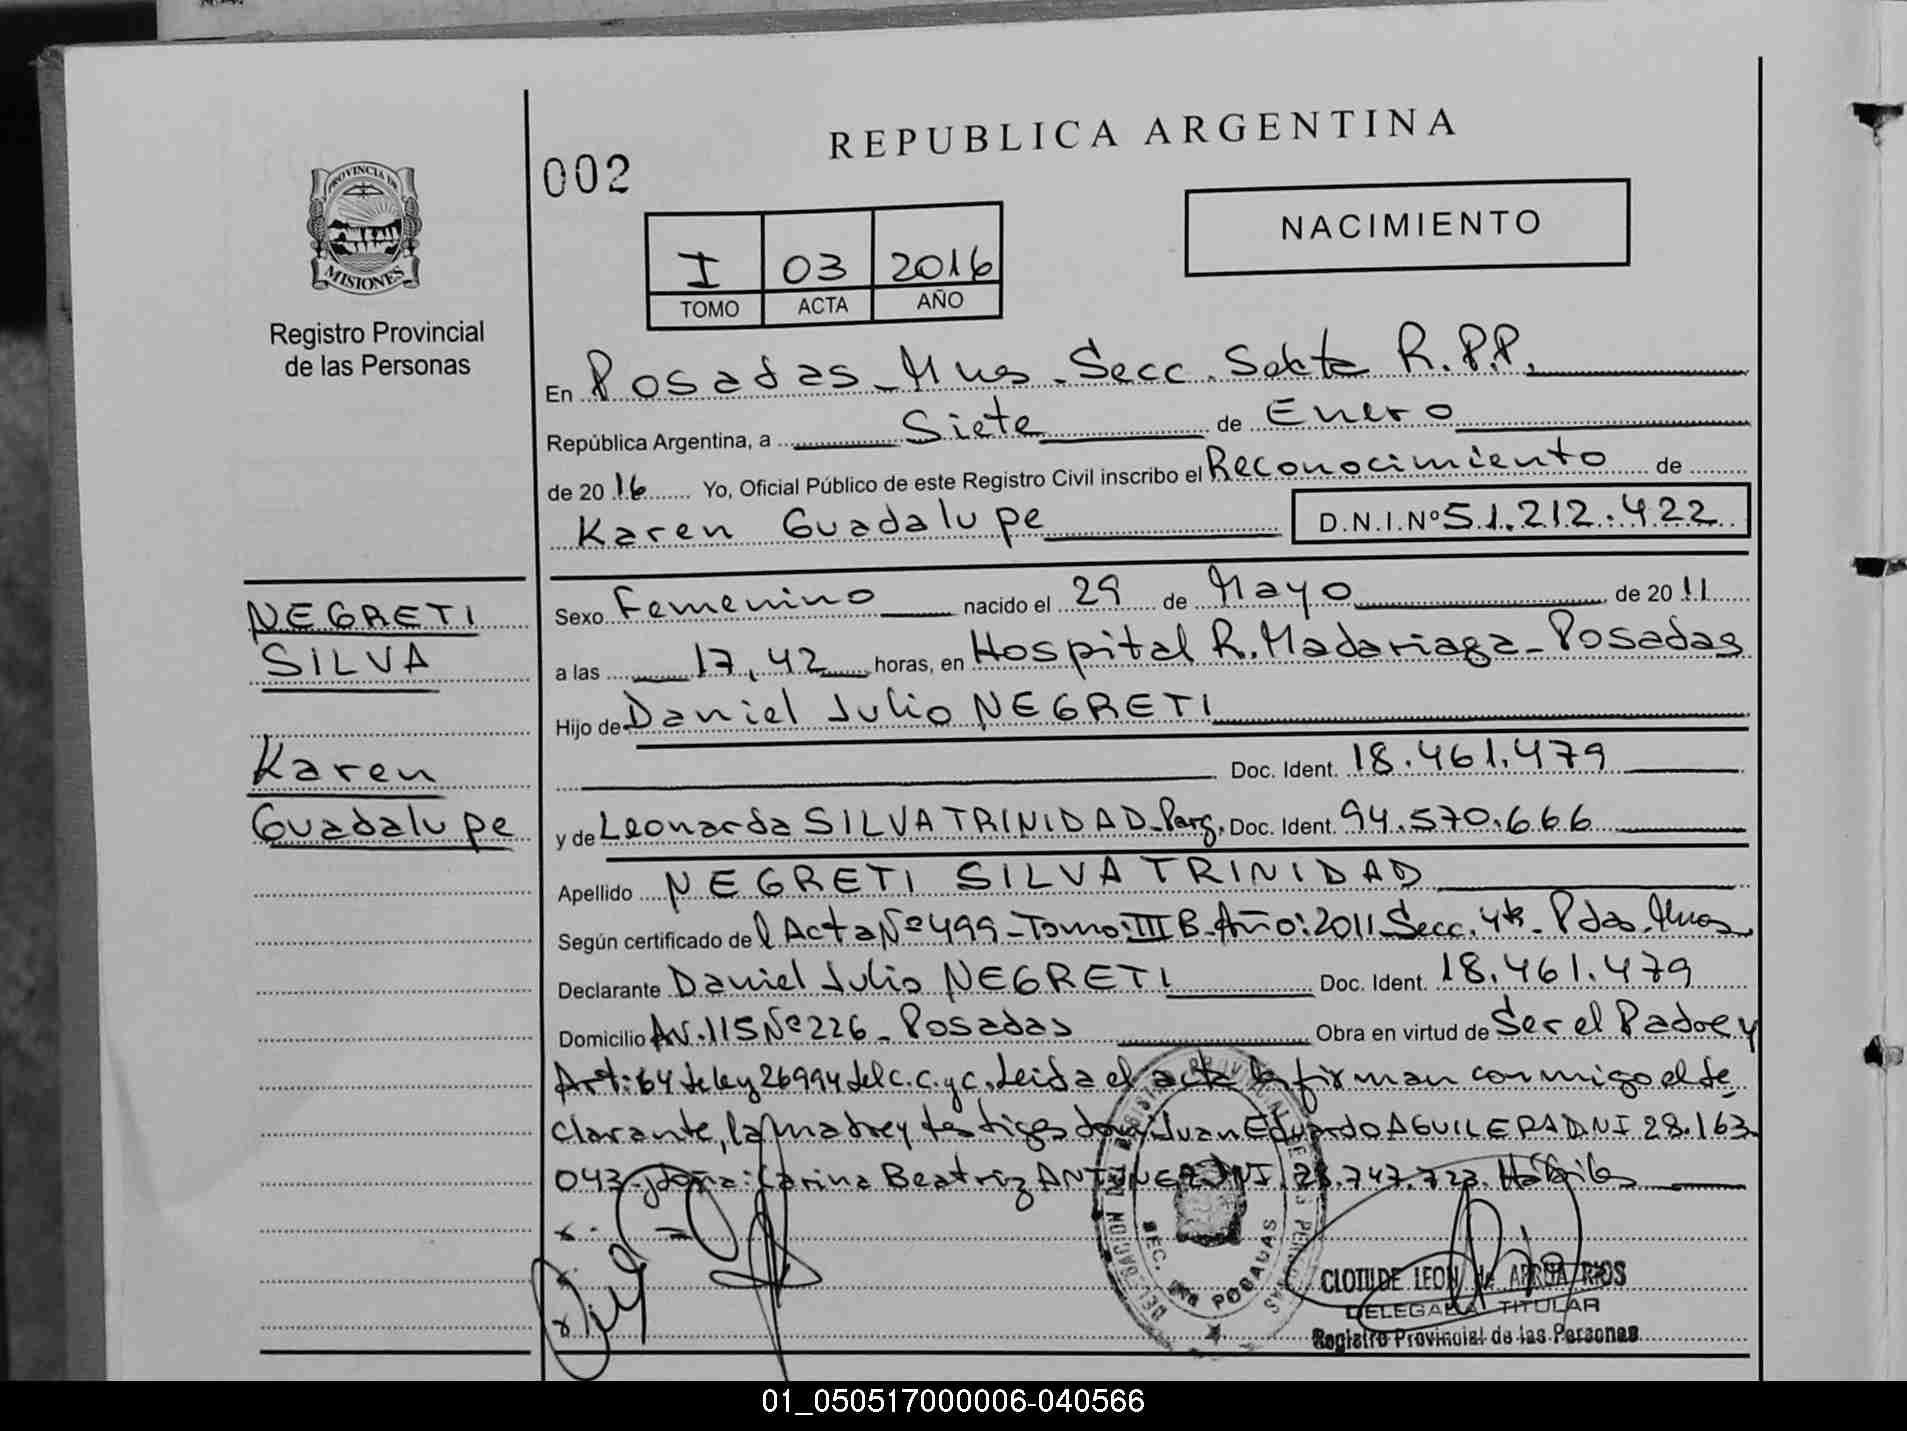 002
REPUBLICA ARGENTINA
NACIMIENTO
PROVINCIA DE
MISIONES
Registro Provincial
de las Personas
I 03 2016
TOMO ACTA AÑO
En Posadas - Mnes. Secc. Sexta R.P.P.
República Argentina, a Siete de Enero
de 2016 Yo, Oficial Público de este Registro Civil inscribo el Reconocimiento de
Karen Guadalupe D.N.I.Nº 51.212.422
NEGRETI
SILVA
Karen
Guadalupe
Sexo Femenino nacido el 29 de Mayo de 2011
a las 17,42 horas, en Hospital R. Madariaga - Posadas
Hijo de Daniel Julio NEGRETI
Doc. Ident. 18.461.479
y de Leonarda SILVA TRINIDAD - Parg. Doc. Ident. 94.570.666
Apellido NEGRETI SILVA TRINIDAD
Según certificado del Acta Nº 499 - Tomo: III B - Año: 2011 Secc. 4ta - Pdas. Mnes.
Declarante Daniel Julio NEGRETI Doc. Ident. 18.461.479
Domicilio Av. 115 Nº 226 - Posadas Obra en virtud de Ser el Padre y
Art: 64 de ley 26994 del C.C.yC. Leida el acta la firman conmigo el de
clarante, la madre y testigos don: Juan Eduardo AGUILERA DNI 28.163.
043 y doña: Carina Beatriz ANTUNEZ DNI 28.747.723. Hábiles
SEC. POSADAS
CLOTILDE LEON de ARRUA RIOS
DELEGADA TITULAR
Registro Provincial de las Personas
01_050517000006-040566